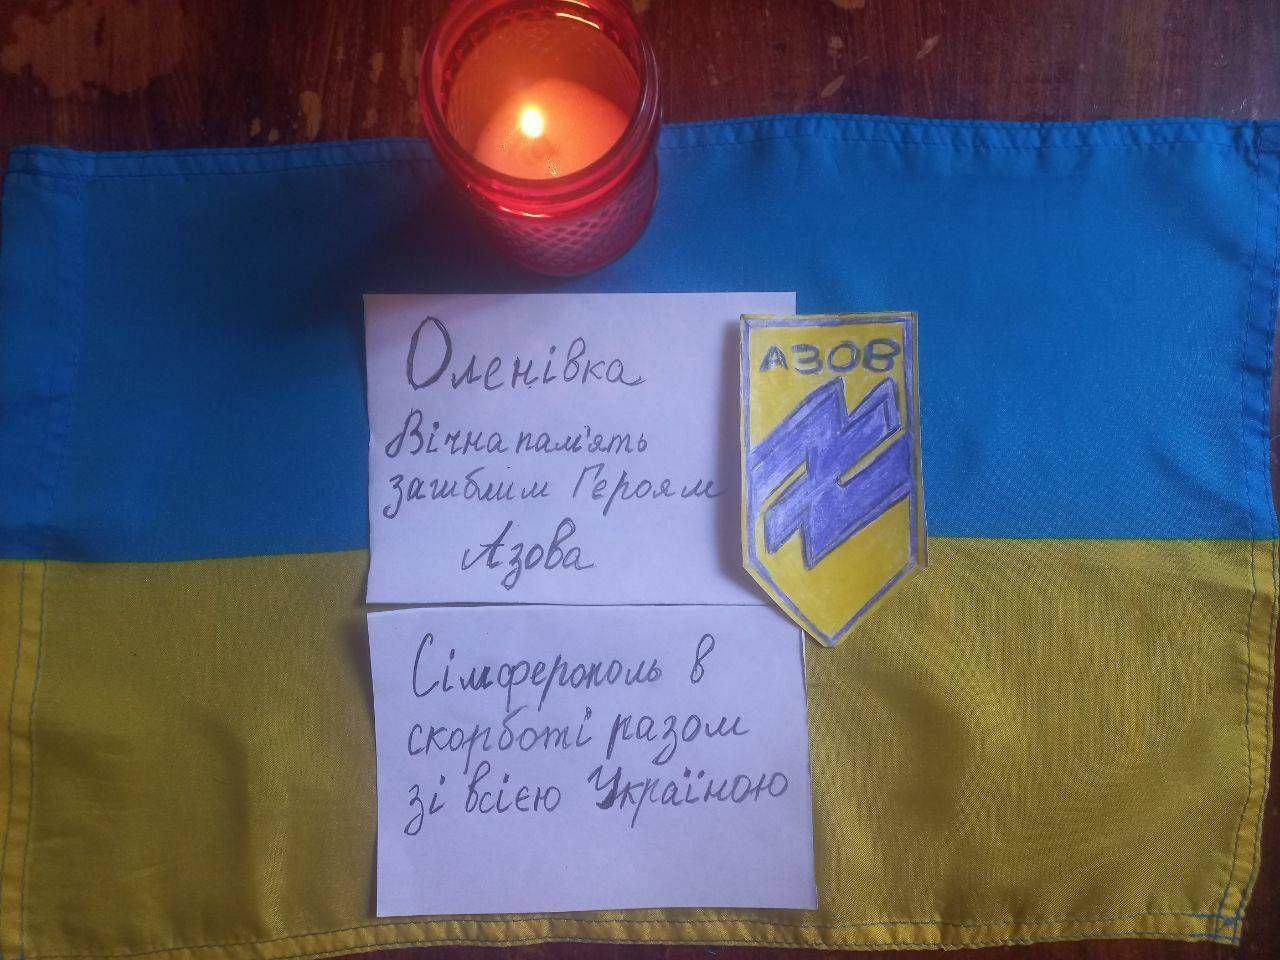 Оленівка
Вічна пам'ять
загиблим Героям
Азова
АЗОВ
Сімферополь в
скорботі разом
зі всією Україною